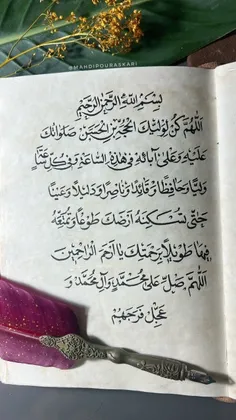 @MAHDIPOURASKARI
بِسْمِ اللهِ الرَّحْمٰنِ الرَّحِيْمِ
اَللّٰهُمَّ كُنْ لِوَلِيِّكَ الْحُجَّةِ بْنِ الْحَسَنِ صَلَوَاتُكَ
عَلَيْهِ وَعَلىٰ آبائِهِ فِي هٰذِهِ السَّاعَةِ وَفِي كُلِّ سَاعَةٍ
وَلِيًّا وَحَافِظًا وَقَائِدًا وَنَاصِرًا وَدَلِيْلًا وَعَيْنًا
حَتّىٰ تُسْكِنَهُ أَرْضَكَ طَوْعًا وَتُمَتِّعَهُ
فِيهَا طَوِيْلًا بِرَحْمَتِكَ يَا أَرْحَمَ الرَّاحِمِيْنَ
اَللّٰهُمَّ صَلِّ عَلىٰ مُحَمَّدٍ وَآلِ مُحَمَّدٍ وَ
عَجِّلْ فَرَجَهُمْ